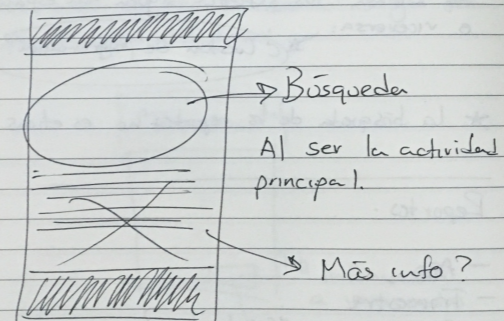 Búsqueda
Al ser la actividad
principal.
Más info?
Reportes